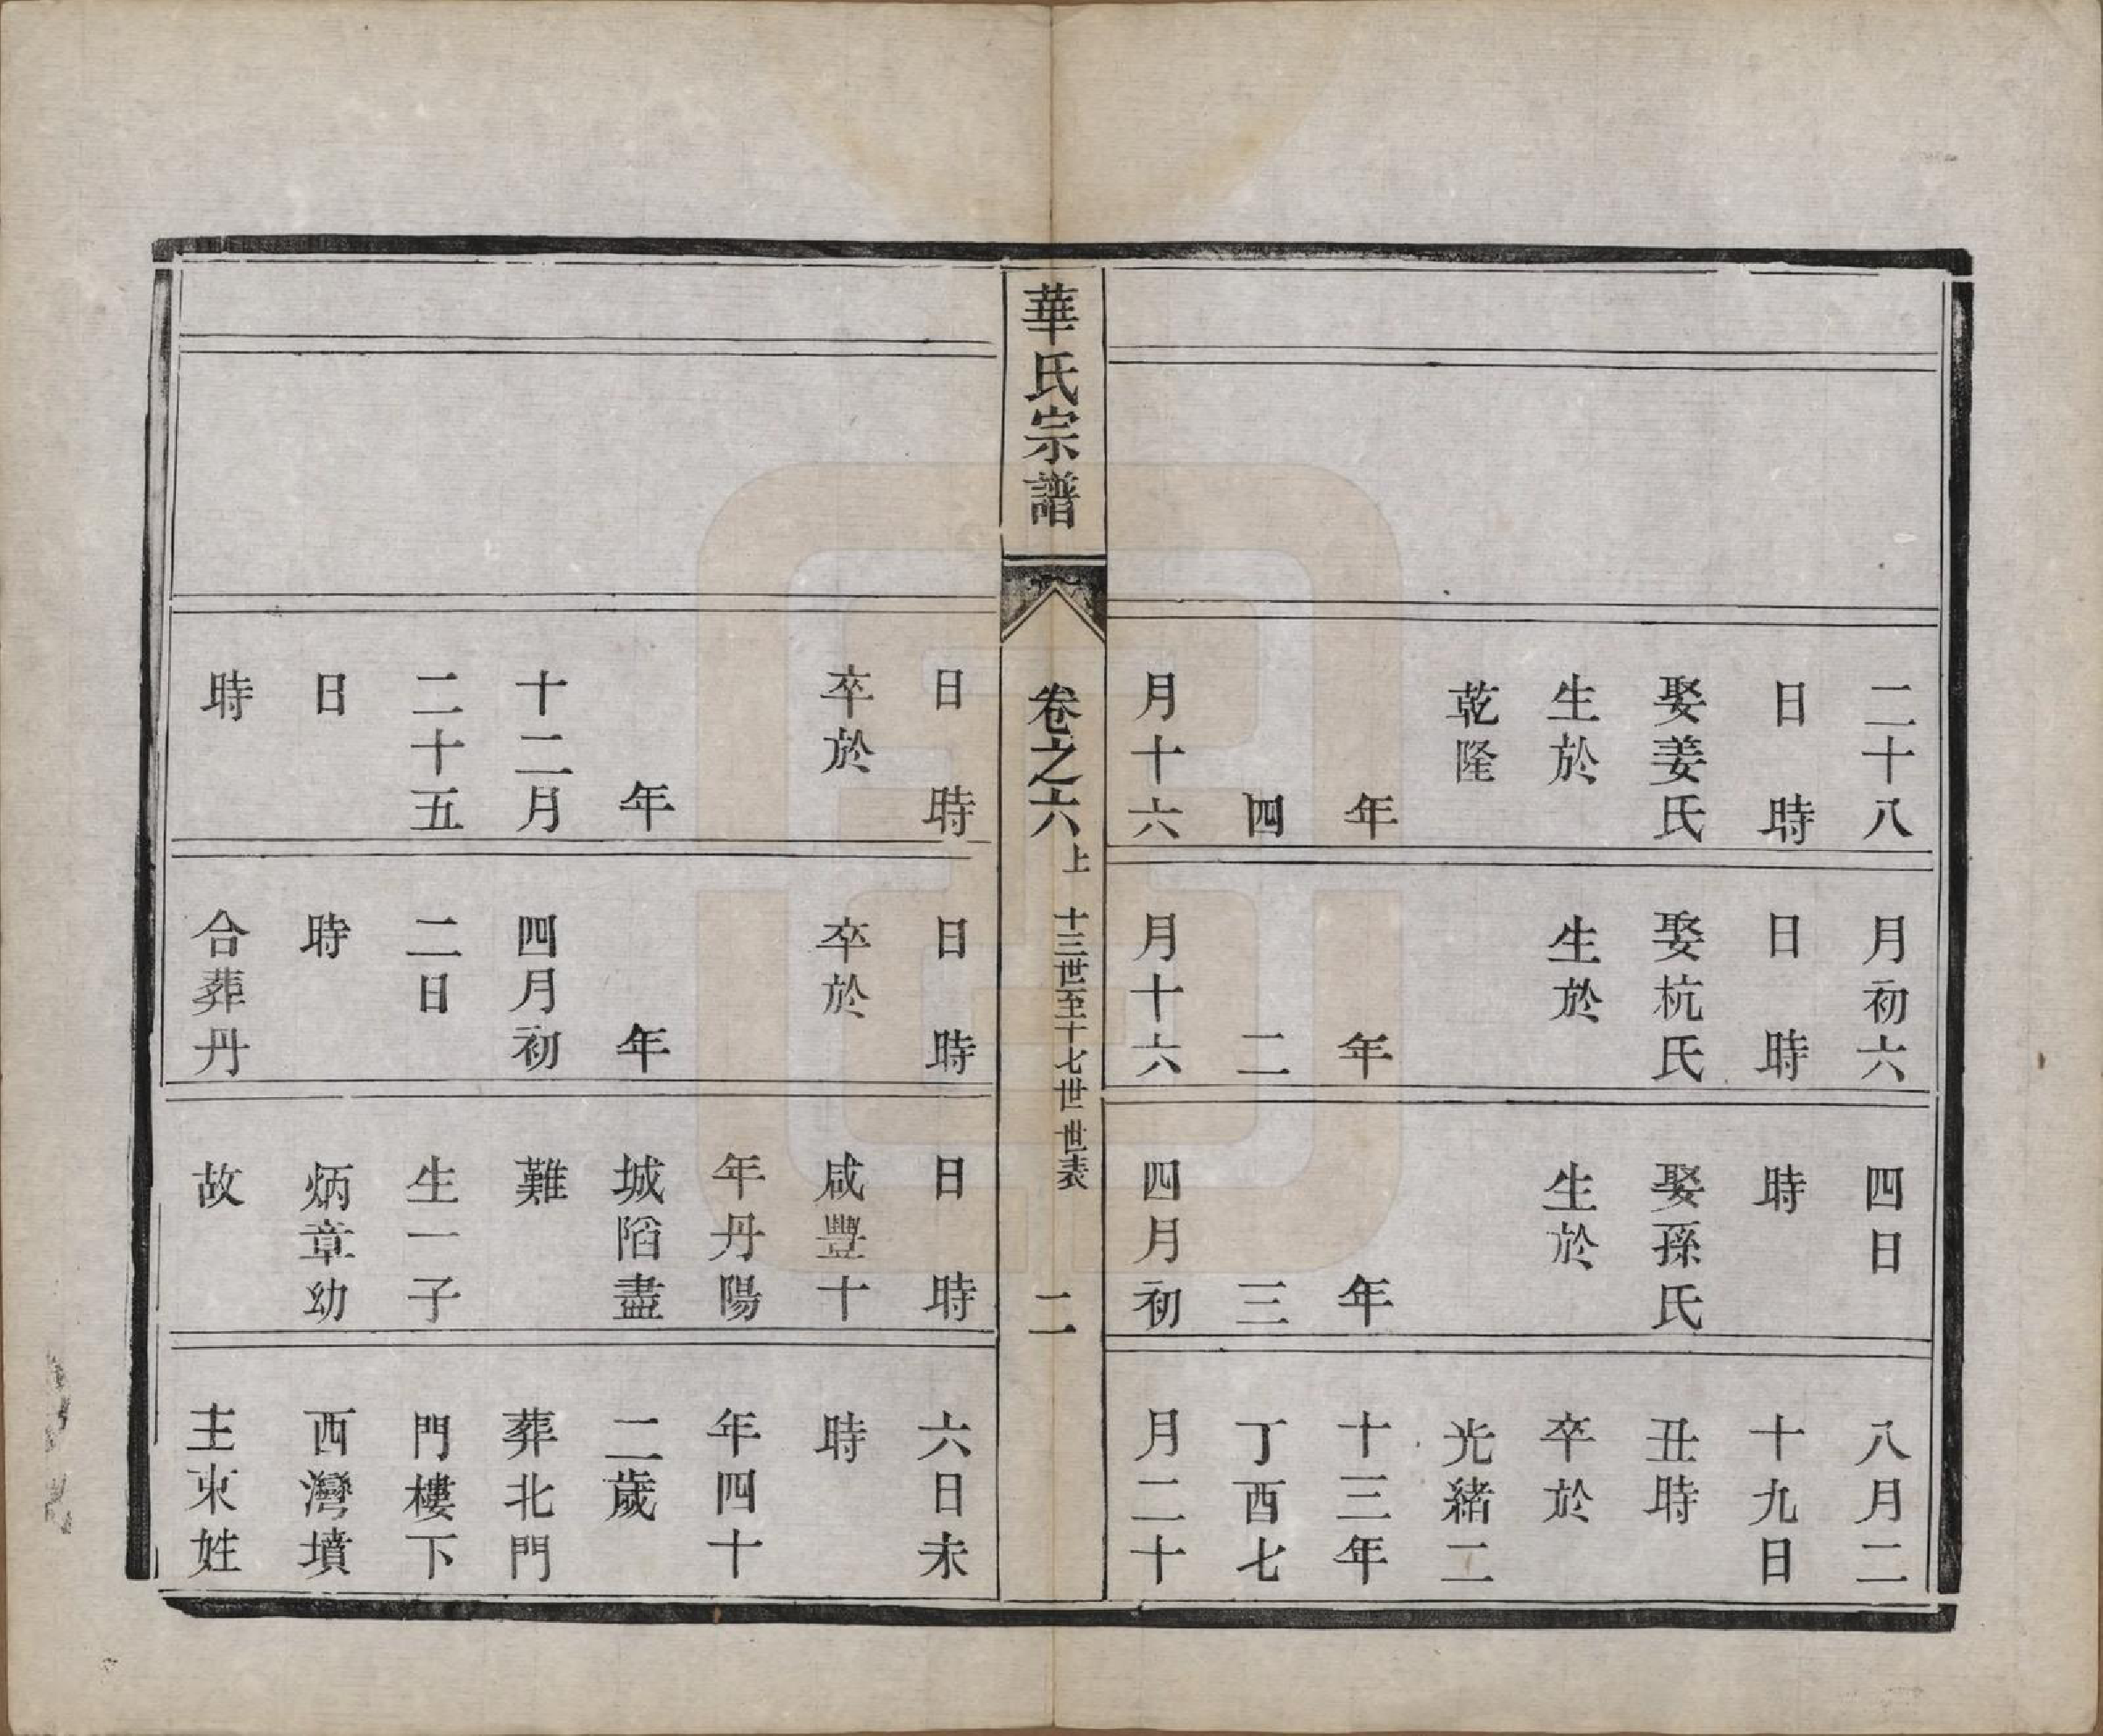 二十八
日　時
娶姜氏
生於
乾隆
年
四
月十六
月初六
日　時
娶杭氏
生於
年
二
月十六
四日
時
娶孫氏
生於
年
三
四月初
八月二
十九日
丑時
卒於
光緒二
十三年
丁酉七
月二十
華氏宗譜
卷之六上　十三世至十七世　世表
二
日　時
卒於
年
十二月
二十五
日
時
日　時
卒於
年
四月初
二日
時
合葬丹
日　時
咸豐十
年丹陽
城陷盡
難
生一子
炳章幼
故
六日未
時
年四十
二歲
葬北門
門樓下
西灣墳
主朿姓